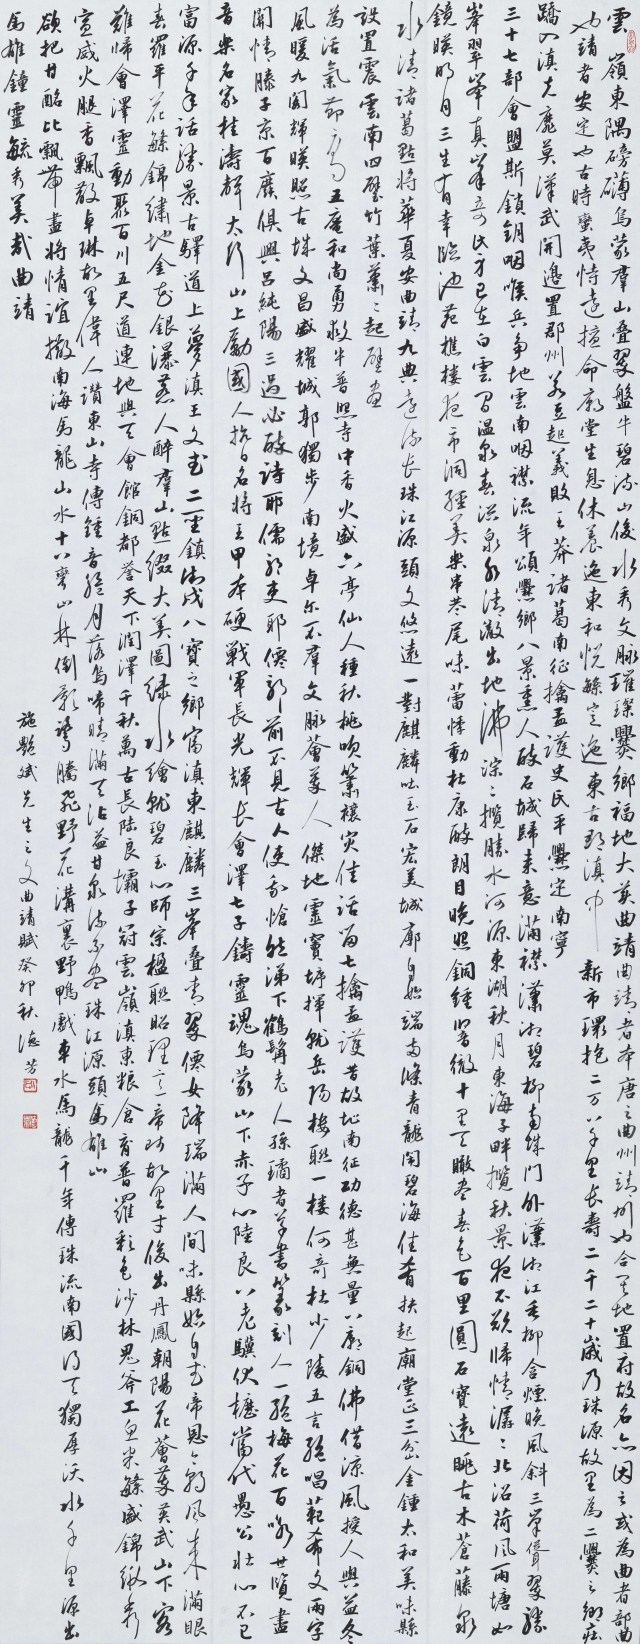 雲嶺東隅磅礴烏蒙群山叠翠盤牛碧流山俊水秀文脉璀璨爨鄉福地大美曲靖曲靖者本唐之曲州靖州也合天地置府故名亦因之或為曲者部曲
也靖者安定也古時蠻夷恃遠擅命廟堂生息休養迤東和悦繁定迤東古
新市環抱二万八千里長壽二千二十歲乃珠源故里為二爨之鄉莊
蹻入滇尤靡莫漢武開邊置郡州若豆起義敗王莽諸葛南征擒孟護史氏平爨定南寧
三十七部會盟斯鎖鑰咽喉兵争地雲南咽襟流年頌爨鄉八景熏人醉石城歸来意滿襟瀟湘碧柳南珠門外瀟湘江垂柳含煙晚風斜三峯聳翠勝
峯翠峯真峯奇氏方已在白雲間温泉春浴泉水清澈出地沸淙淙攬勝水河源東湖秋月東海子畔攬秋景夜不欲歸情潺潺北沼荷風雨塘如
鏡暎明月三生有幸臨池苑樵樓夜市洞經美樂串巷尾味蕾悸動杜康醉朗目晚照銅鍾警微十里天瞰盡春色百里圓石寶遠眺古木蒼藤泉
水清諸葛點將華夏安曲靖九典遠流長珠江源頭文悠遠一對麒麟吐玉石宏美城廓自然端南條青龍開碧海佳肴扶起廟堂正三岔金鍾太和美味縣
設置震雲南四壁竹葉蕭蕭起壁畫
為活氣節高五庵和尚勇救牛普照寺中香火盛六亭仙人種秋桃吹簫禳灾佳話留七擒孟護昔故址南征功德甚無量八廟銅佛借涼風授人與益冬
風暖九閣輝暎照古城文昌盛耀城郭獨步南境卓尔不群文脉薈萃人傑地靈竇垿揮就岳陽樓聯一樓何奇杜少陵五言絶唱范希文兩字
關情滕子京百廢俱興吕純陽三過必醉詩耶儒耶吏耶僊耶前不見古人使我愴然涕下鶴髯老人孫璚者草書篆刻人一絶梅花百咏世覽盡
音樂名家桂濤聲太行山上勵國人抗日名將王甲本硬戰軍長光輝長會澤七子鑄靈魂烏蒙山下赤子心陸良八老驥伏櫪當代愚公壯心不已
富源千年話勝景古驛道上夢滇王文武二坐鎮衛戍八寶之鄉富滇東麒麟三峯叠青翠僊女降瑞滿人間味縣始自武帝恩恩朝風来滿眼
春羅平花繁錦繡地金花銀瀑惹人醉群山點綴大美圖緑水繪就碧玉心師宗楹聯昭理言帝師故里才俊出丹鳳朝陽花薈萃英武山下客
難歸會澤靈動聚百川五尺道連地與天會館銅都譽天下潤澤千秋萬古長陸良壩子冠雲嶺滇東粮倉育普羅彩色沙林鬼斧工魚米繁盛錦綉秀
宣威火腿香飄散卓琳故里偉人讚東山寺傳鍾音繞月落烏啼晴滿天沾益甘泉流不盡珠江源頭馬雄山
欲把甘酩比飄帶盡將情誼撒南海馬龍山水十八彎山林倒影鷺騰飛野花溝裏野鴨戲車水馬龍千年傳珠流南國得天獨厚沃水千里源出
馬雄鍾靈毓秀美哉曲靖
施艷斌先生之文曲靖賦癸卯秋德芳